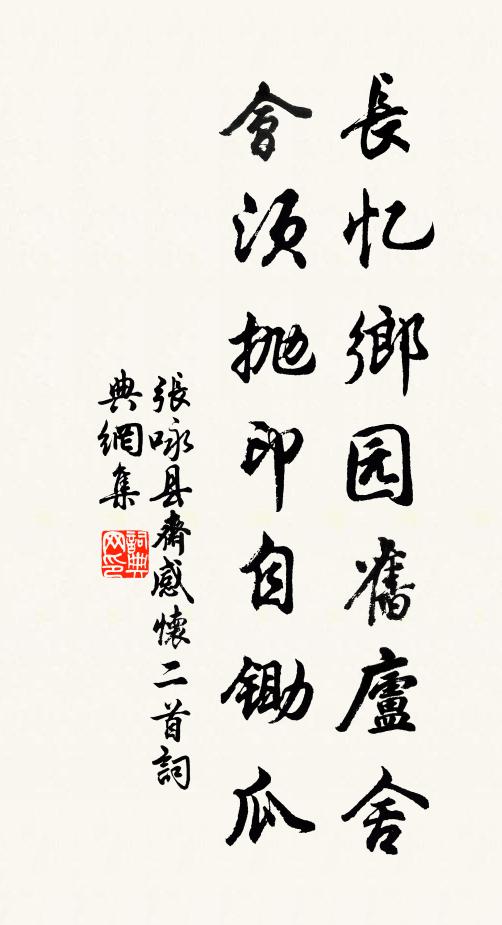 長忆鄉园舊廬舍
會須抛印自锄瓜
張咏县齋感懷二首詞
典網集
詞典
网印